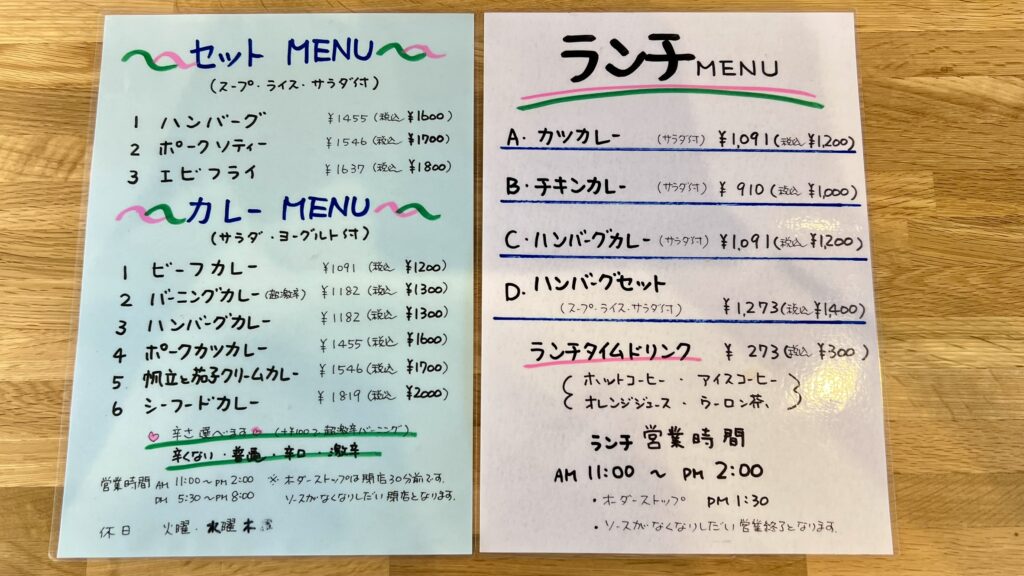 セット MENU
(スープ・ライス・サラダ付)
1 ハンバーグ ¥1455 (税込 ¥1600)
2 ポークソティー ¥1546 (税込 ¥1700)
3 エビフライ ¥1637 (税込 ¥1800)
カレー MENU
(サラダ・ヨーグルト付)
1 ビーフカレー ¥1091 (税込 ¥1200)
2 バーニングカレー(超激辛) ¥1182 (税込 ¥1300)
3 ハンバーグカレー ¥1182 (税込 ¥1300)
4 ポークカツカレー ¥1455 (税込 ¥1600)
5 帆立と茄子クリームカレー ¥1546 (税込 ¥1700)
6 シーフードカレー ¥1819 (税込 ¥2000)
辛さ選べます (+¥100で超激辛バーニング)
辛くない・普通・辛口・激辛
営業時間 AM 11:00～PM 2:00 ※オーダーストップは閉店30分前です。
PM 5:30～PM 8:00 ソースがなくなりしだい閉店となります。
休日 火曜・水曜 木
ランチ MENU
A. カツカレー (サラダ付) ¥1,091 (税込 ¥1,200)
B. チキンカレー (サラダ付) ¥ 910 (税込 ¥1,000)
C. ハンバーグカレー (サラダ付) ¥1,091 (税込 ¥1,200)
D. ハンバーグセット
(スープ・ライス・サラダ付) ¥1,273 (税込 ¥1400)
ランチタイムドリンク ¥ 273 (税込 ¥300)
ホットコーヒー・アイスコーヒー
オレンジジュース・ウーロン茶、
ランチ 営業時間
AM 11:00 ～ PM 2:00
・オーダーストップ PM 1:30
・ソースがなくなりしだい営業終了となります。